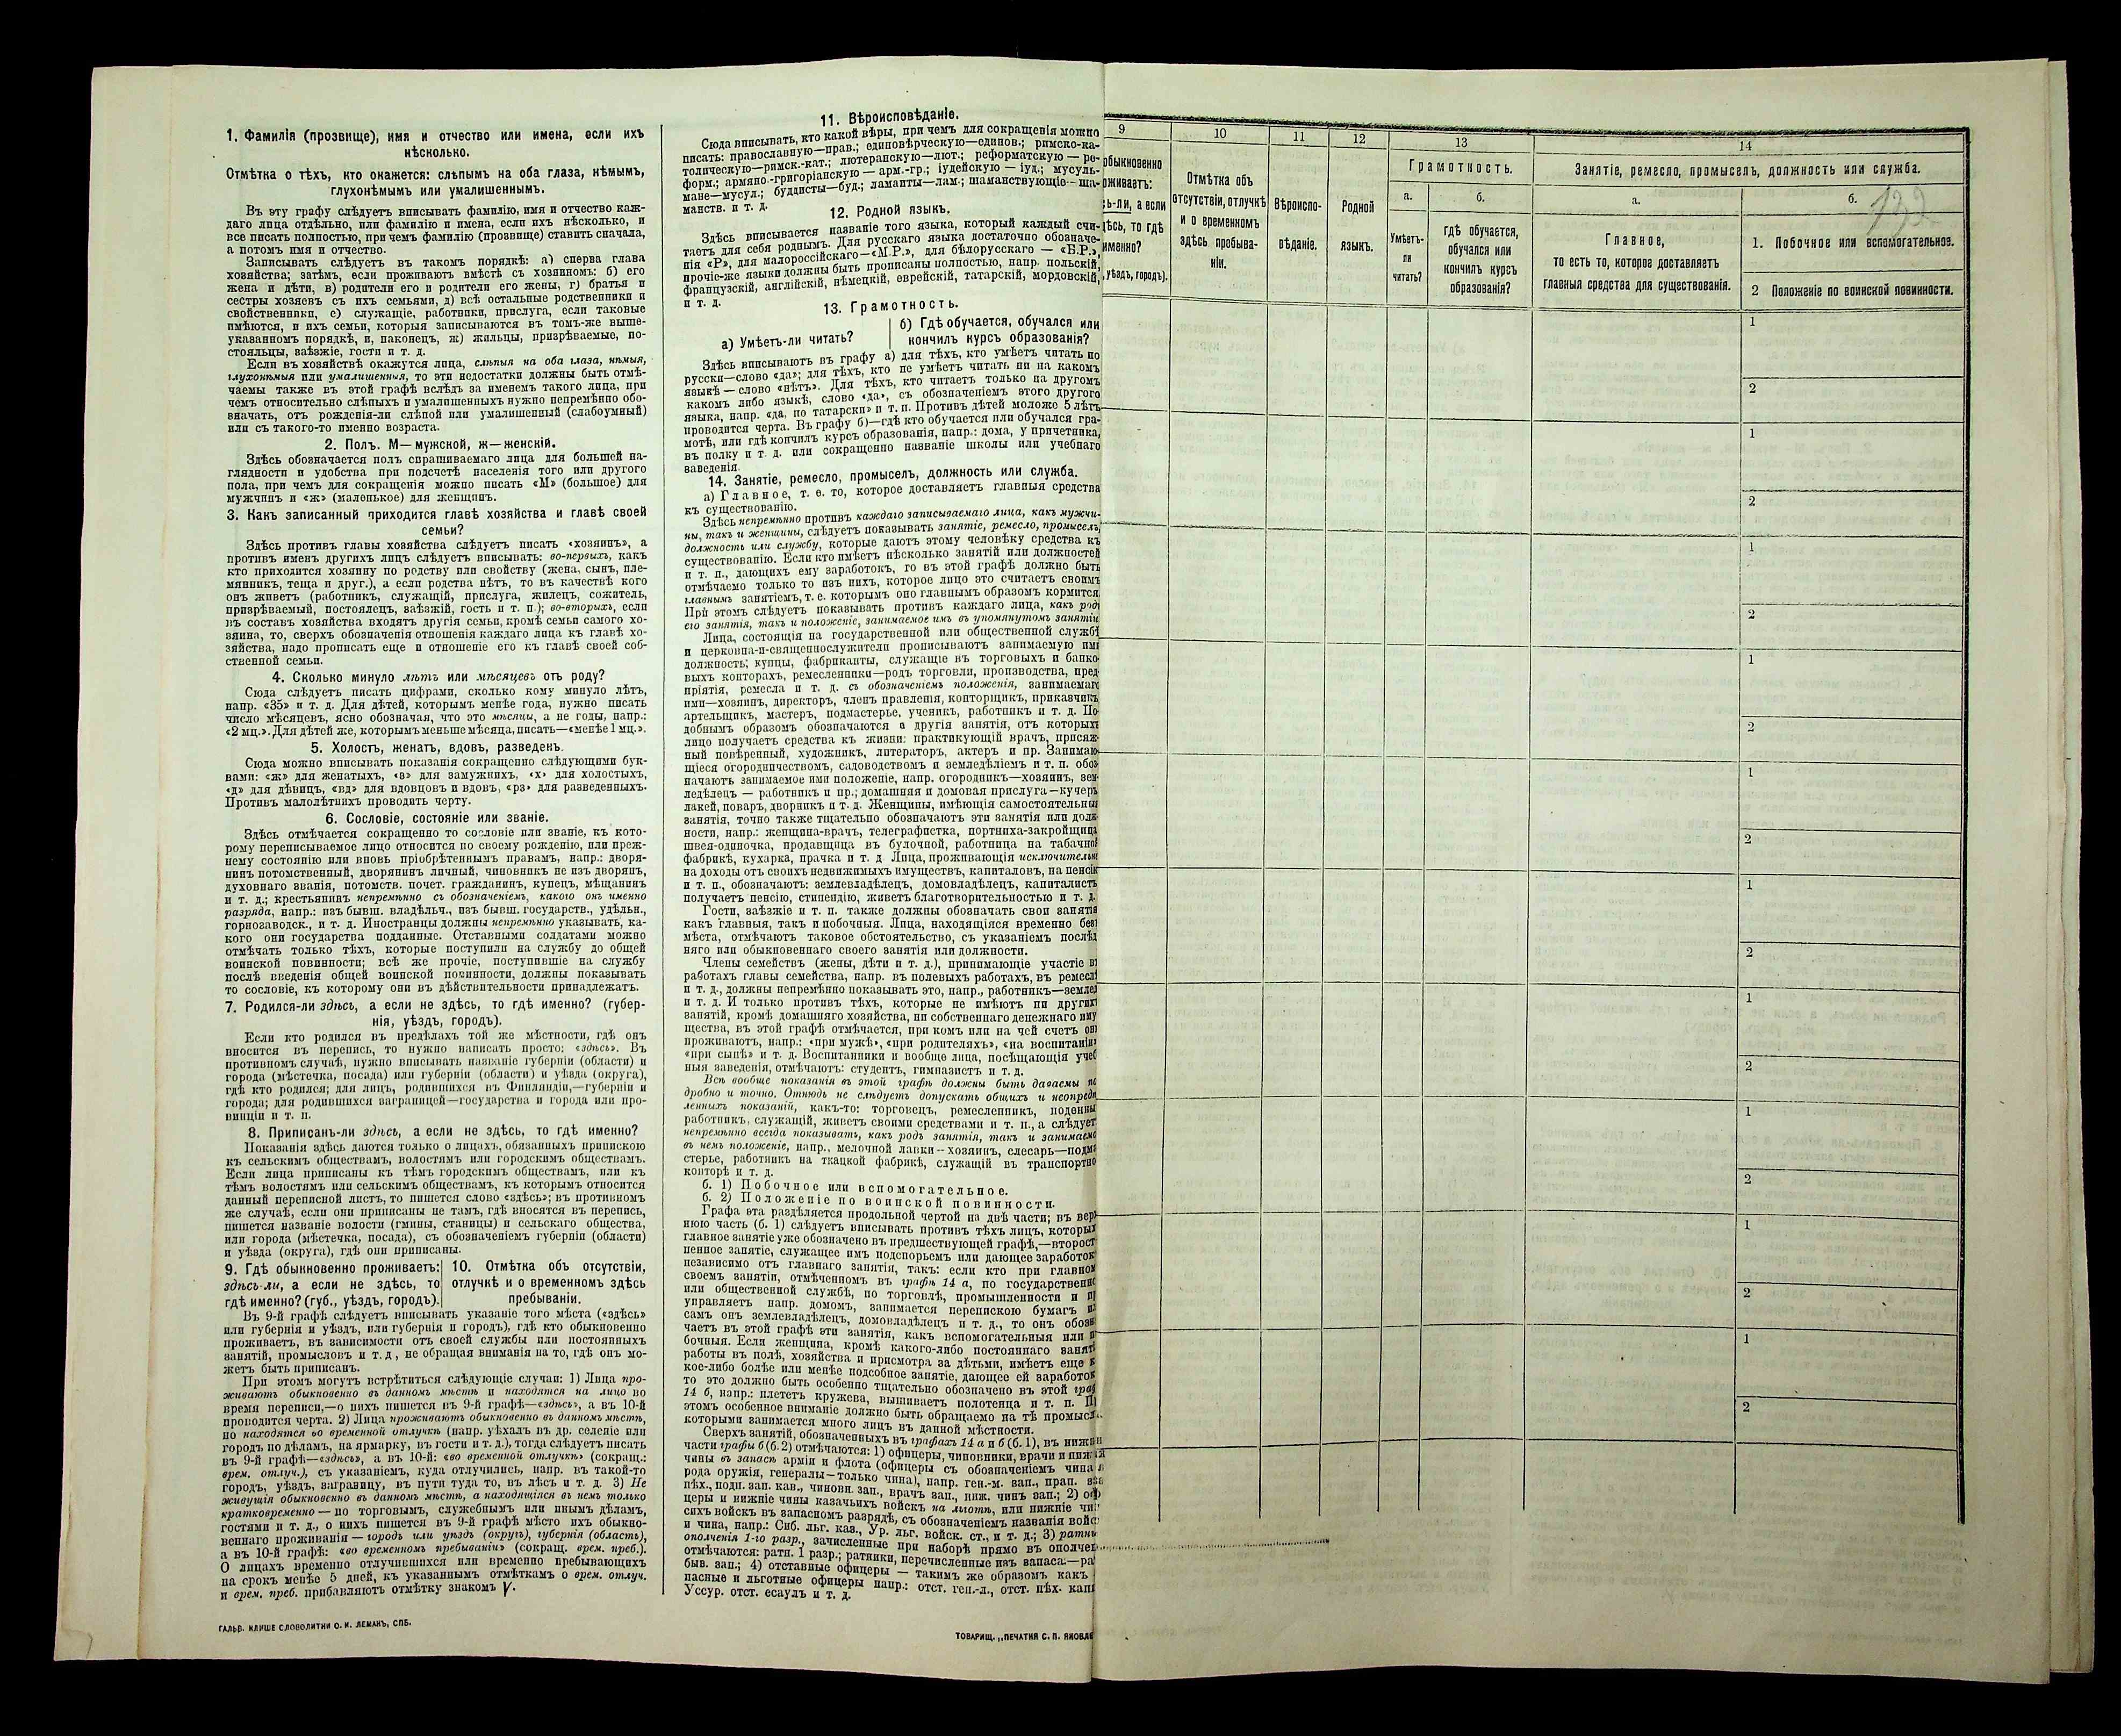 1. Фамилія (прозвище), имя и отчество или имена, если ихъ
нѣсколько.
Отмѣтка о тѣхъ, кто окажется: слѣпымъ на оба глаза, нѣмымъ,
глухонѣмымъ или умалишеннымъ.
Въ эту графу слѣдуетъ вписывать фамилію, имя и отчество каж-
даго лица отдѣльно, или фамилію и имена, если ихъ нѣсколько, и
все писать полностью, при чемъ фамилію (прозвище) ставить сначала,
а потомъ имя и отчество.
Записывать слѣдуетъ въ такомъ порядкѣ: а) сперва глава
хозяйства; затѣмъ, если проживаютъ вмѣстѣ съ хозяиномъ: б) его
жена и дѣти, в) родители его и родители его жены, г) братья и
сестры хозяевъ съ ихъ семьями, д) всѣ остальные родственники и
свойственники, е) служащіе, работники, прислуга, если таковые
имѣются, и ихъ семьи, которыя записываются въ томъ-же выше-
указанномъ порядкѣ, и, наконецъ, ж) жильцы, призрѣваемые, по-
стояльцы, заѣзжіе, гости и т. д.
Если въ хозяйствѣ окажутся лица, слѣпыя на оба глаза, нѣмыя,
глухонѣмыя или умалишенныя, то эти недостатки должны быть отмѣ-
чаемы также въ этой графѣ вслѣдъ за именемъ такого лица, при
чемъ относительно слѣпыхъ и умалишенныхъ нужно непремѣнно обо-
значать, отъ рожденія-ли слѣпой или умалишенный (слабоумный)
или съ такого-то именно возраста.
2. Полъ. М—мужской, ж—женскій.
Здѣсь обозначается полъ спрашиваемаго лица для большей на-
глядности и удобства при подсчетѣ населенія того или другого
пола, при чемъ для сокращенія можно писать «М» (большое) для
мужчинъ и «ж» (маленькое) для женщинъ.
3. Какъ записанный приходится главѣ хозяйства и главѣ своей
семьи?
Здѣсь противъ главы хозяйства слѣдуетъ писать «хозяинъ», а
противъ именъ другихъ лицъ слѣдуетъ вписывать: во-первыхъ, какъ
кто приходится хозяину по родству или свойству (жена, сынъ, пле-
мянникъ, теща и друг.), а если родства нѣтъ, то въ качествѣ кого
онъ живетъ (работникъ, служащій, прислуга, жилецъ, сожитель,
призрѣваемый, постоялецъ, заѣзжій, гость и т. п.); во-вторыхъ, если
въ составъ хозяйства входятъ другія семьи, кромѣ семьи самого хо-
зяина, то, сверхъ обозначенія отношенія каждаго лица къ главѣ хо-
зяйства, надо прописать еще и отношеніе его къ главѣ своей соб-
ственной семьи.
4. Сколько минуло лѣтъ или мѣсяцевъ отъ роду?
Сюда слѣдуетъ писать цифрами, сколько кому минуло лѣтъ,
напр. «35» и т. д. Для дѣтей, которымъ менѣе года, нужно писать
число мѣсяцевъ, ясно обозначая, что это мѣсяцы, а не годы, напр.:
«2 мц.». Для дѣтей же, которымъ меньше мѣсяца, писать—«менѣе 1 мц.».
5. Холостъ, женатъ, вдовъ, разведенъ.
Сюда можно вписывать показанія сокращенно слѣдующими бук-
вами: «ж» для женатыхъ, «з» для замужнихъ, «х» для холостыхъ,
«д» для дѣвицъ, «вд» для вдовцовъ и вдовъ, «рз» для разведенныхъ.
Противъ малолѣтнихъ проводить черту.
6. Сословіе, состояніе или званіе.
Здѣсь отмѣчается сокращенно то сословіе или званіе, къ кото-
рому переписываемое лицо относится по своему рожденію, или преж-
нему состоянію или вновь пріобрѣтеннымъ правамъ, напр.: дворя-
нинъ потомственный, дворянинъ личный, чиновникъ не изъ дворянъ,
духовнаго званія, потомств. почет. гражданинъ, купецъ, мѣщанинъ
и т. д.; крестьянинъ непремѣнно съ обозначеніемъ, какого онъ именно
разряда, напр.: изъ бывш. владѣльч., изъ бывш. государств., удѣльн.,
горнозаводск., и т. д. Иностранцы должны непремѣнно указывать, ка-
кого они государства подданные. Отставными солдатами можно
отмѣчать только тѣхъ, которые поступили на службу до общей
воинской повинности; всѣ же прочіе, поступившіе на службу
послѣ введенія общей воинской повинности, должны показывать
то сословіе, къ которому они въ дѣйствительности принадлежатъ.
7. Родился-ли здѣсь, а если не здѣсь, то гдѣ именно? (губер-
нія, уѣздъ, городъ).
Если кто родился въ предѣлахъ той же мѣстности, гдѣ онъ
вносится въ перепись, то нужно написать просто: «здѣсь». Въ
противномъ случаѣ, нужно вписывать названіе губерніи (области) и
города (мѣстечка, посада) или губерніи (области) и уѣзда (округа),
гдѣ кто родился; для лицъ, родившихся въ Финляндіи,—губерніи и
города; для родившихся заграницей—государства и города или про-
винціи и т. п.
8. Приписанъ-ли здѣсь, а если не здѣсь, то гдѣ именно?
Показанія здѣсь даются только о лицахъ, обязанныхъ припискою
къ сельскимъ обществамъ, волостямъ или городскимъ обществамъ.
Если лица приписаны къ тѣмъ городскимъ обществамъ, или къ
тѣмъ волостямъ или сельскимъ обществамъ, къ которымъ относится
данный переписной листъ, то пишется слово «здѣсь»; въ противномъ
же случаѣ, если они приписаны не тамъ, гдѣ вносятся въ перепись,
пишется названіе волости (гмины, станицы) и сельскаго общества,
или города (мѣстечка, посада), съ обозначеніемъ губерніи (области)
и уѣзда (округа), гдѣ они приписаны.
9. Гдѣ обыкновенно проживаетъ:
здѣсь-ли, а если не здѣсь, то
гдѣ именно? (губ., уѣздъ, городъ).
10. Отмѣтка объ отсутствіи,
отлучкѣ и о временномъ здѣсь
пребываніи.
Въ 9-й графѣ слѣдуетъ вписывать указаніе того мѣста («здѣсь»
или губернія и уѣздъ, или губернія и городъ), гдѣ кто обыкновенно
проживаетъ, въ зависимости отъ своей службы или постоянныхъ
занятій, промысловъ и т. д., не обращая вниманія на то, гдѣ онъ мо-
жетъ быть приписанъ.
При этомъ могутъ встрѣтиться слѣдующіе случаи: 1) Лица про-
живаютъ обыкновенно въ данномъ мѣстѣ и находятся на лицо во
время переписи,—о нихъ пишется въ 9-й графѣ—«здѣсь», а въ 10-й
проводится черта. 2) Лица проживаютъ обыкновенно въ данномъ мѣстѣ,
но находятся во временной отлучкѣ (напр. уѣхалъ въ др. селеніе или
городъ по дѣламъ, на ярмарку, въ гости и т. д.), тогда слѣдуетъ писать
въ 9-й графѣ—«здѣсь», а въ 10-й: «во временной отлучкѣ» (сокращ.:
врем. отлуч.), съ указаніемъ, куда отлучились, напр. въ такой-то
городъ, уѣздъ, заграницу, въ пути туда то, въ лѣсъ и т. д. 3) Не
живущія обыкновенно въ данномъ мѣстѣ, а находящіяся въ немъ только
кратковременно — по торговымъ, служебнымъ или инымъ дѣламъ,
гостями и т. д., о нихъ пишется въ 9-й графѣ мѣсто ихъ обыкно-
веннаго проживанія — городъ или уѣздъ (округъ), губернія (область),
а въ 10-й графѣ: «во временномъ пребываніи» (сокращ. врем. преб.).
О лицахъ временно отлучившихся или временно пребывающихъ
на срокъ менѣе 5 дней, къ указаннымъ отмѣткамъ о врем. отлуч.
и врем. преб. прибавляютъ отмѣтку знакомъ V.
ГАЛЬВ. КЛИШЕ СЛОВОЛИТНИ О. И. ЛЕМАНЪ, СПБ.
11. Вѣроисповѣданіе.
Сюда вписывать, кто какой вѣры, при чемъ для сокращенія можно
писать: православную—прав.; единовѣрческую—единов.; римско-ка-
толическую—римск.-кат.; лютеранскую—лют.; реформатскую — ре-
форм.; армяно-григоріанскую — арм.-гр.; іудейскую — іуд.; мусуль-
мане—мусул.; буддисты—буд.; ламаиты—лам.; шаманствующіе—ша-
манств. и т. д.
12. Родной языкъ.
Здѣсь вписывается названіе того языка, который каждый счи-
таетъ для себя роднымъ. Для русскаго языка достаточно обозначе-
нія «Р», для малороссійскаго—«М.Р.», для бѣлорусскаго — «Б.Р.»,
прочіе-же языки должны быть прописаны полностью, напр. польскій,
французскій, англійскій, нѣмецкій, еврейскій, татарскій, мордовскій,
и т. д.
13. Грамотность.
а) Умѣетъ-ли читать?
б) Гдѣ обучается, обучался или
кончилъ курсъ образованія?
Здѣсь вписываютъ въ графу а) для тѣхъ, кто умѣетъ читать по
русски—слово «да»; для тѣхъ, кто не умѣетъ читать ни на какомъ
языкѣ—слово «нѣтъ». Для тѣхъ, кто читаетъ только на другомъ
какомъ либо языкѣ, слово «да», съ обозначеніемъ этого другого
языка, напр. «да, по татарски» и т. п. Противъ дѣтей моложе 5 лѣтъ
проводится черта. Въ графу б)—гдѣ кто обучается или обучался гра-
мотѣ, или гдѣ кончилъ курсъ образованія, напр.: дома, у причетника,
въ полку и т. д. или сокращенно названіе школы или учебнаго
заведенія.
14. Занятіе, ремесло, промыселъ, должность или служба.
а) Главное, т. е. то, которое доставляетъ главныя средства
къ существованію.
Здѣсь непремѣнно противъ каждаго записываемаго лица, какъ мужчи-
ны, такъ и женщины, слѣдуетъ показывать занятіе, ремесло, промыселъ,
должность или службу, которые даютъ этому человѣку средства къ
существованію. Если кто имѣетъ нѣсколько занятій или должностей
и т. п., дающихъ ему заработокъ, то въ этой графѣ должно быть
отмѣчаемо только то изъ нихъ, которое лицо это считаетъ своимъ
главнымъ занятіемъ, т. е. которымъ оно главнымъ образомъ кормится.
При этомъ слѣдуетъ показывать противъ каждаго лица, какъ родъ
его занятія, такъ и положеніе, занимаемое имъ въ упомянутомъ занятіи
Лица, состоящія на государственной или общественной службѣ
и церковна-и-священнослужители прописываютъ занимаемую ими
должность; купцы, фабриканты, служащіе въ торговыхъ и банко-
выхъ конторахъ, ремесленники—родъ торговли, производства, пред-
пріятія, ремесла и т. д. съ обозначеніемъ положенія, занимаемаго
ими—хозяинъ, директоръ, членъ правленія, конторщикъ, приказчикъ
артельщикъ, мастеръ, подмастерье, ученикъ, работникъ и т. д. По-
добнымъ образомъ обозначаются и другія занятія, отъ которыхъ
лицо получаетъ средства къ жизни: практикующій врачъ, присяж-
ный повѣренный, художникъ, литераторъ, актеръ и пр. Занимаю-
щіеся огородничествомъ, садоводствомъ и земледѣліемъ и т. п. обоз-
начаютъ занимаемое ими положеніе, напр. огородникъ—хозяинъ, зем-
ледѣлецъ — работникъ и пр.; домашняя и домовая прислуга—кучеръ
лакей, поваръ, дворникъ и т. д. Женщины, имѣющія самостоятельныя
занятія, точно также тщательно обозначаютъ эти занятія или долж-
ности, напр.: женщина-врачъ, телеграфистка, портниха-закройщица
швея-одиночка, продавщица въ булочной, работница на табачной
фабрикѣ, кухарка, прачка и т. д. Лица, проживающія исключительно
на доходы отъ своихъ недвижимыхъ имуществъ, капиталовъ, на пенсію
и т. п., обозначаютъ: землевладѣлецъ, домовладѣлецъ, капиталистъ
получаетъ пенсію, стипендію, живетъ благотворительностью и т. д.
Гости, заѣзжіе и т. п. также должны обозначать свои занятія
какъ главныя, такъ и побочныя. Лица, находящіяся временно безъ
мѣста, отмѣчаютъ таковое обстоятельство, съ указаніемъ послѣд
няго или обыкновеннаго своего занятія или должности.
Члены семействъ (жены, дѣти и т. д.), принимающіе участіе въ
работахъ главы семейства, напр. въ полевыхъ работахъ, въ ремеслѣ
и т. д., должны непремѣнно показывать это, напр., работникъ—землед
и т. д. И только противъ тѣхъ, которые не имѣютъ ни другихъ
занятій, кромѣ домашняго хозяйства, ни собственнаго денежнаго иму
щества, въ этой графѣ отмѣчается, при комъ или на чей счетъ они
проживаютъ, напр.: «при мужѣ», «при родителяхъ», «на воспитаніи»
«при сынѣ» и т. д. Воспитанники и вообще лица, посѣщающія учеб
ныя заведенія, отмѣчаютъ: студентъ, гимназистъ и т. д.
Всѣ вообще показанія въ этой графѣ должны быть даваемы по
дробно и точно. Отнюдь не слѣдуетъ допускать общихъ и неопредѣ
ленныхъ показаній, какъ-то: торговецъ, ремесленникъ, поденный
работникъ, служащій, живетъ своими средствами и т. п., а слѣдуетъ
непремѣнно всегда показывать, какъ родъ занятія, такъ и занимаемое
въ немъ положеніе, напр., мелочной лавки—хозяинъ, слесарь—подма
стерье, работникъ на ткацкой фабрикѣ, служащій въ транспортно
конторѣ и т. д.
б. 1) Побочное или вспомогательное.
б. 2) Положеніе по воинской повинности.
Графа эта раздѣляется продольной чертой на двѣ части; въ верх
нюю часть (б. 1) слѣдуетъ вписывать противъ тѣхъ лицъ, которыхъ
главное занятіе уже обозначено въ предшествующей графѣ,—второст
пенное занятіе, служащее имъ подспорьемъ или дающее заработокъ
независимо отъ главнаго занятія, такъ: если кто при главномъ
своемъ занятіи, отмѣченномъ въ графѣ 14 а, по государственно
или общественной службѣ, по торговлѣ, промышленности и п
управляетъ напр. домомъ, занимается перепискою бумагъ и
самъ онъ землевладѣлецъ, домовладѣлецъ и т. д., то онъ обозн
чаетъ въ этой графѣ эти занятія, какъ вспомогательныя или п
бочныя. Если женщина, кромѣ какого-либо постояннаго заняті
работы въ полѣ, хозяйства и присмотра за дѣтьми, имѣетъ еще к
кое-либо болѣе или менѣе подсобное занятіе, дающее ей заработок
то это должно быть особенно тщательно обозначено въ этой граф
14 б, напр.: плететъ кружева, вышиваетъ полотенца и т. п. П
этомъ особенное вниманіе должно быть обращаемо на тѣ промысл
которыми занимается много лицъ въ данной мѣстности.
Сверхъ занятій, обозначенныхъ въ графахъ 14 а и б (б. 1), въ нижн
части графы б (б. 2) отмѣчаются: 1) офицеры, чиновники, врачи и нижн
чины въ запасѣ арміи и флота (офицеры съ обозначеніемъ чина
рода оружія, генералы—только чина), напр. ген.-м. зап., прап. за
пѣх., подп. зап. кав., чиновн. зап., врачъ зап., ниж. чинъ зап.; 2) оф
церы и нижніе чины казачьихъ войскъ на льготѣ, или нижніе чи
сихъ войскъ въ запасномъ разрядѣ, съ обозначеніемъ названія войс
и чина, напр.: Сиб. льг. каз., Ур. льг. войск. ст., и т. д.; 3) ратни
ополченія 1-го разр., зачисленные при наборѣ прямо въ ополчен
отмѣчаются: ратн. 1 разр.; ратники, перечисленные изъ запаса:—ра
быв. зап.; 4) отставные офицеры — такимъ же образомъ какъ
пасные и льготные офицеры напр.: отст. ген.-л., отст. пѣх. кап
Уссур. отст. есаулъ и т. д.
ТОВАРИЩ. „ПЕЧАТНЯ С. П. ЯКОВЛЕ
9
обыкновенно
оживаетъ:
ь-ли, а если
дѣсь, то гдѣ
именно?
, уѣздъ, городъ).
10
Отмѣтка объ
отсутствіи, отлучкѣ
и о временномъ
здѣсь пребыва-
ніи.
11
Вѣроиспо-
вѣданіе.
12
Родной
языкъ.
13
Грамотность.
а.
Умѣетъ-
ли
читать?
б.
гдѣ обучается,
обучался или
кончилъ курсъ
образованія?
14
Занятіе, ремесло, промыселъ, должность или служба.
а.
Главное,
то есть то, которое доставляетъ
главныя средства для существованія.
б.
132
1. Побочное или вспомогательное.
2 Положеніе по воинской повинности.
1
2
1
2
1
2
1
2
1
2
1
2
1
2
1
2
1
2
1
2